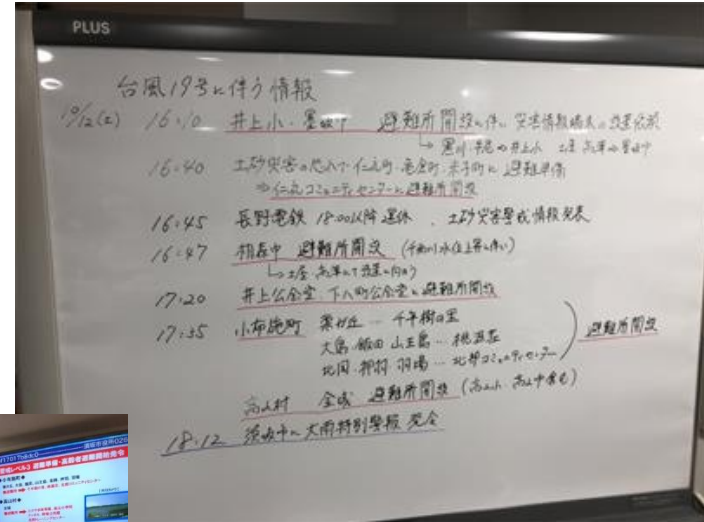 PLUS
台風19号に伴う情報
10/12(土) 16:10 井上小・墨坂中 避難所開設に伴い 災害情報端末の設置依頼
井上小 土屋 高澤⇒墨坂中
16:40 土砂災害の恐れで 仁礼町・亀倉町・米子町に避難準備
⇒仁礼コミュニティセンターに避難所開設
16:45 長野電鉄 18:00以降運休、土砂災害警戒情報発表
16:47 相森中 避難所開設 (千曲川水位上昇に伴い)
土屋・高澤にて設置に向かう
17:20 井上公会堂、下八町公会堂に避難所開設
17:35 小布施町 栗ガ丘… 千年樹の里
大島 飯田 山王島… 桃源荘
北岡・押羽・羽場… 北部コミュニティセンター
避難所開設
高山村 全域 避難所開設 (高山小、高山中含む)
18:12 須坂市に大雨特別警報 発令
警戒レベル3 避難準備・高齢者避難開始発令